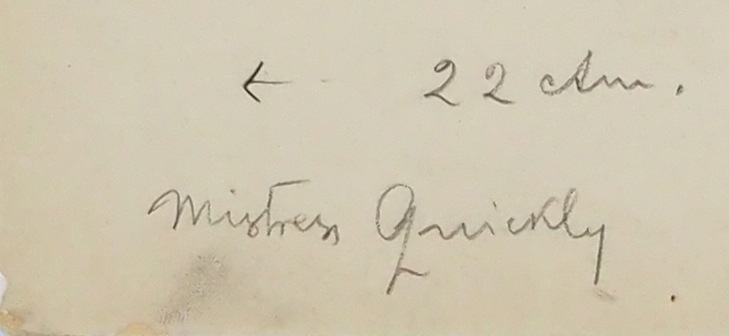 ← 22 cm.
Mistress Quickly